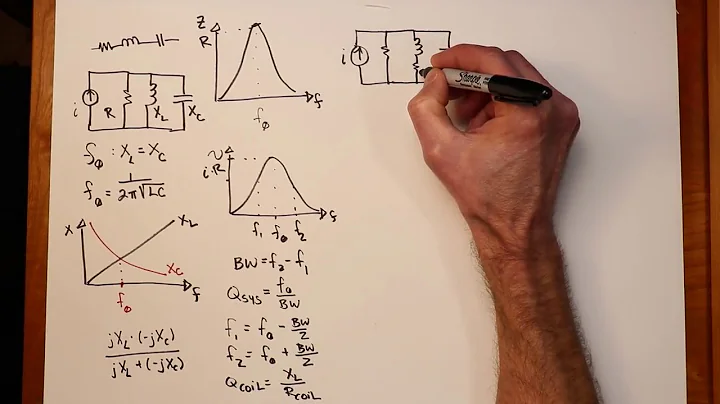 i R X_L X_C
f_0 : X_L = X_C
f_0 = 1 / 2π√LC
X X_L
X_C
f_0 f
jX_L·(-jX_C) / jX_L+(-jX_C)
Z
R
f
f_0
v
i·R
f
f_1 f_0 f_2
BW = f_2 - f_1
Q_SYS = f_0 / BW
f_1 = f_0 - BW/2
f_2 = f_0 + BW/2
Q_COIL = X_L / R_COIL
i
Sharpie